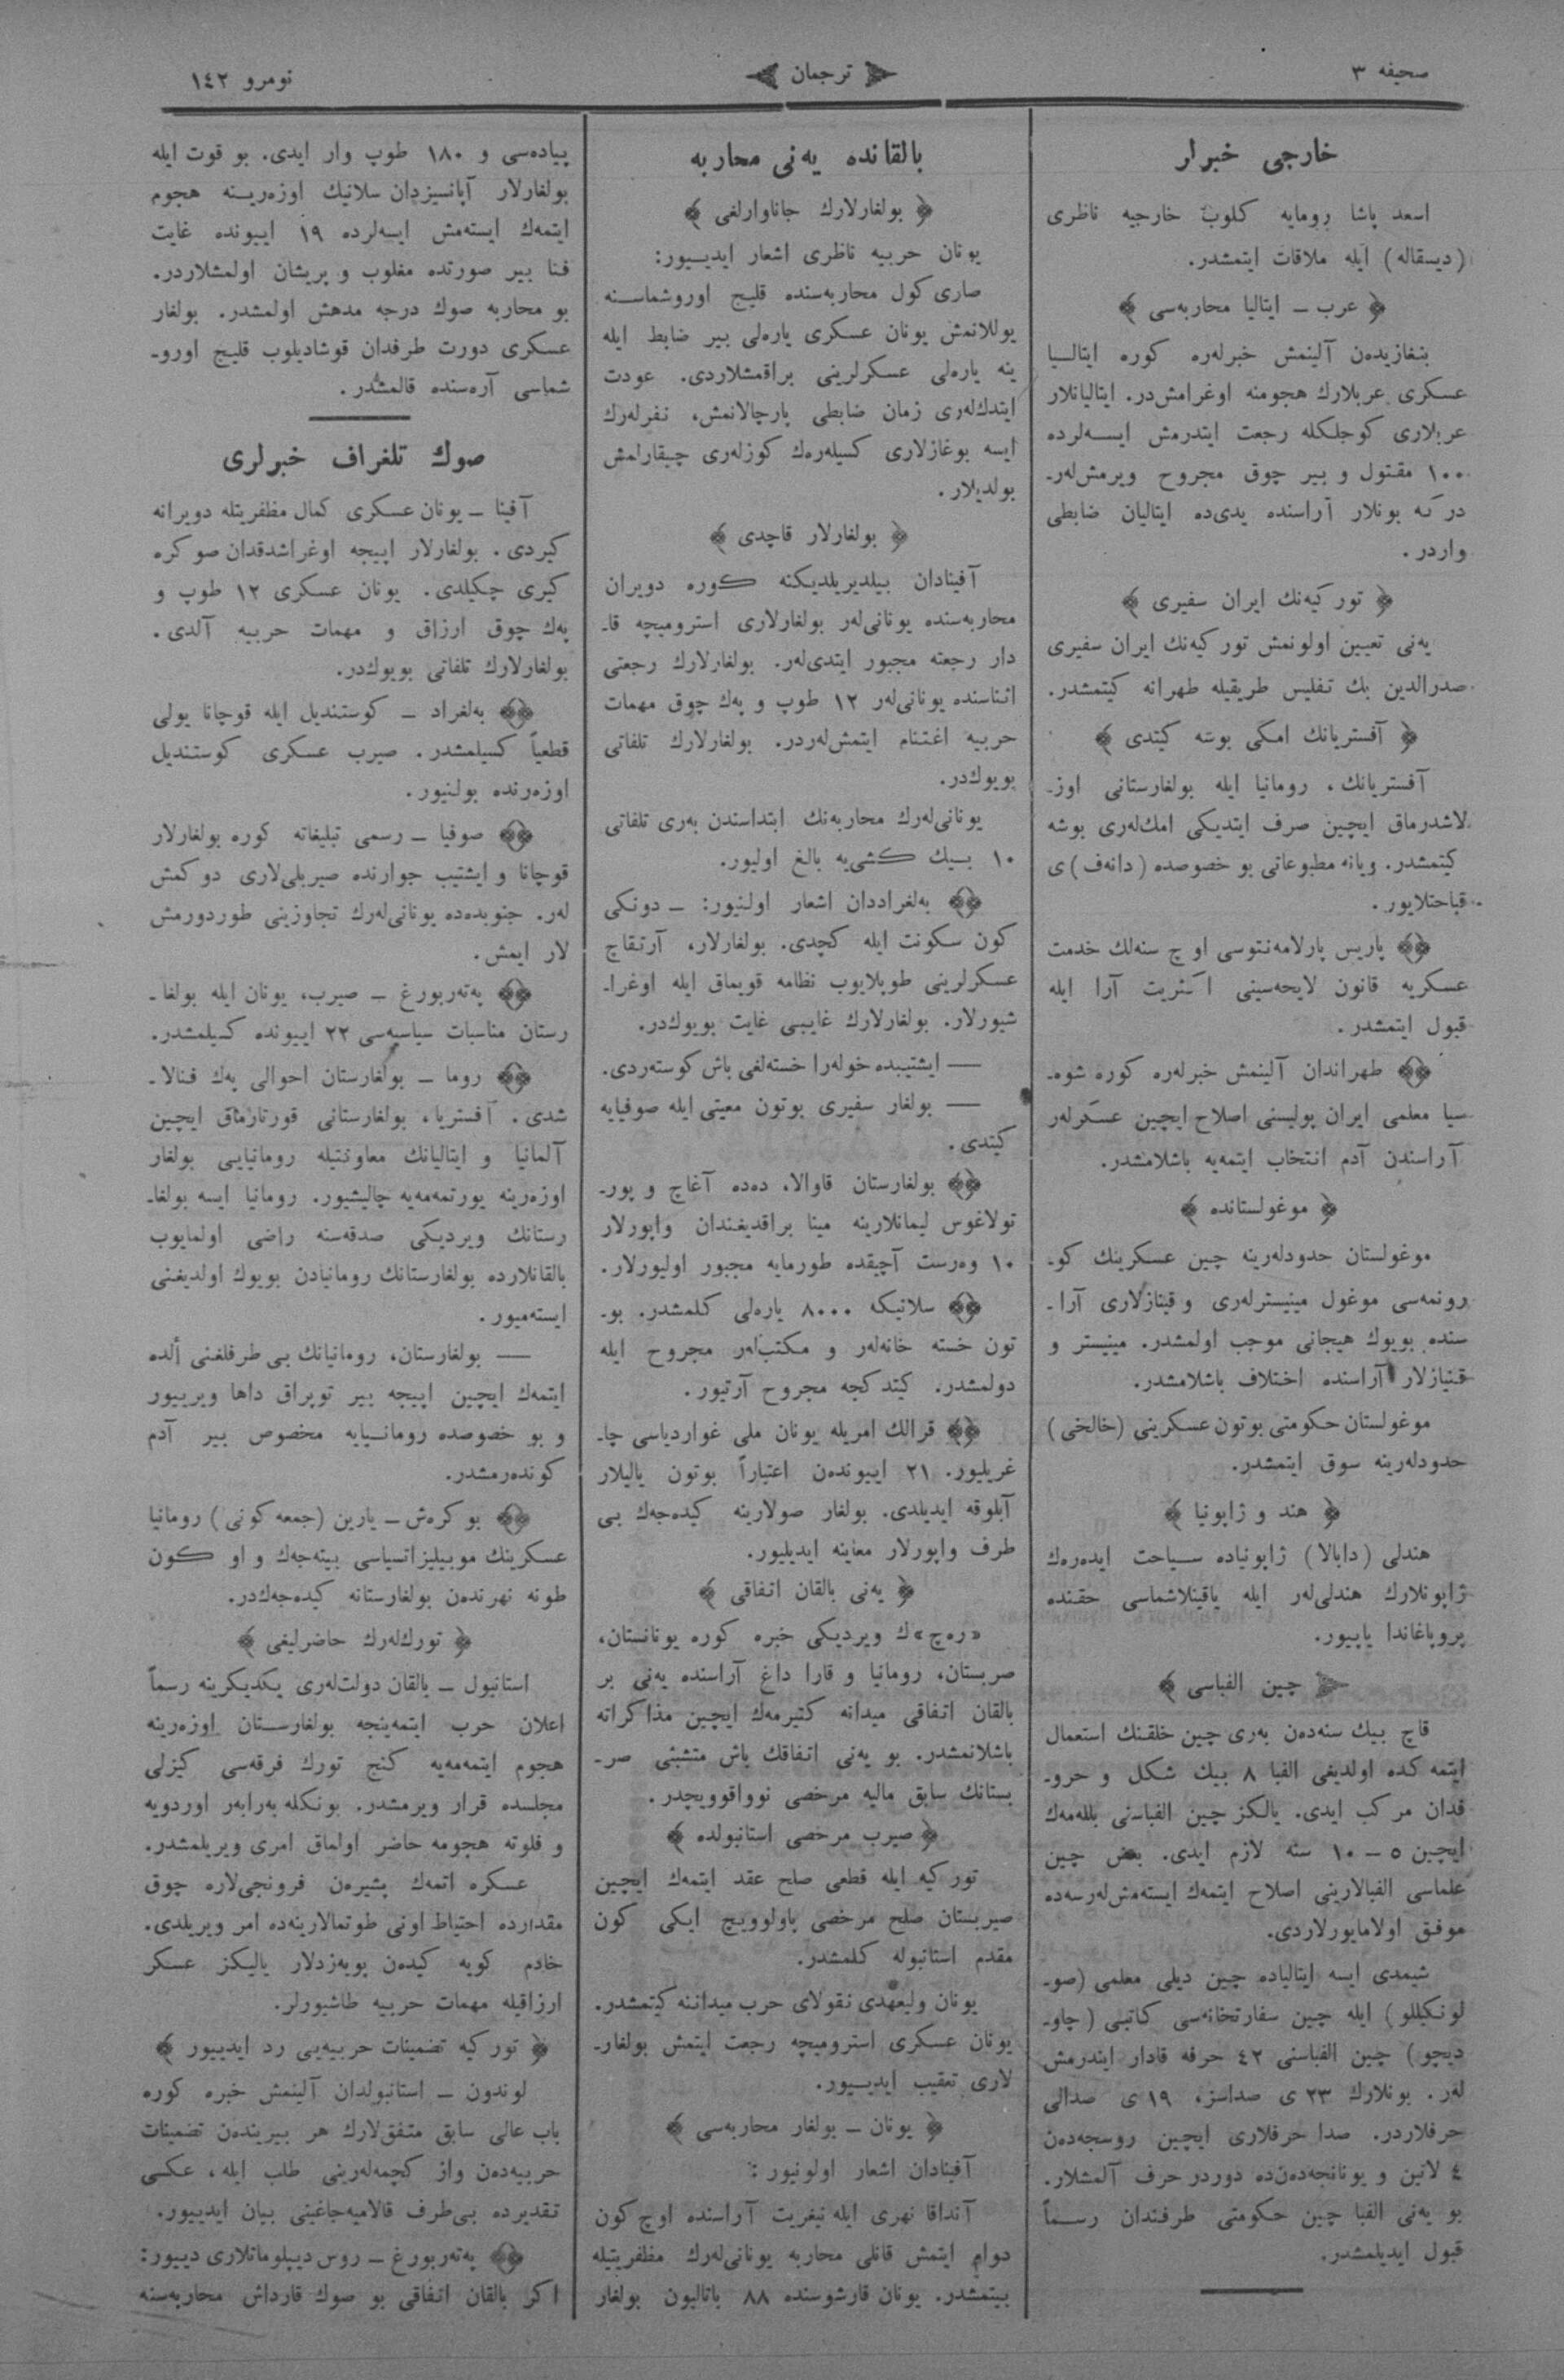 صحیفه ٣
ترجمان
نومرو ١٤٢
خارجی خبرلر
اسعد پاشا رومایه كلوب خارجیه ناظری
(دیسقاله) ایله ملاقات ایتمشدر.
عرب ــ ایتالیا محاربه‌سی
بنغازیدەن آلینمش خبرلەره كوره ایتالــیا
عسكری عربلارك هجومنه اوغرامش‌در. ایتالیانلار
عربلاری كوجلكله رجعت ایتدرمش ایســه‌لرده
١٠٠ مقتول و بیر چوق مجروح ویرمش‌لەر۔
در كه بونلار آراسنده یدی‌ده ایتالیان ضابطی
واردر.
توركیەنك ایران سفیری
یەنی تعیین اولونمش توركیەنك ایران سفیری
صدرالدین بك تفلیس طریقیله طهرانه كیتمشدر.
آفستریانك امكی بوشه كیتدی
آفستریانك، رومانیا ایله بولغارستانی اوز۔
لاشدرماق ایچین صرف ایتدیكی امك‌لەری بوشه
كیتمشدر. ویانه مطبوعاتی بو خصوصده (دانەف) ی
قباحتلایور.
پاریس پارلامەنتوسی اوچ سنەلك خدمت
عسكریه قانون لایحەسینی اكثریت آرا ایله
قبول ایتمشدر.
طهراندان آلینمش خبرلەره كوره شوه۔
سیا معلمی ایران پولیسنی اصلاح ایچین عسكرلەر
آراسندن آدم انتخاب ایتمەیه باشلامشدر.
موغولستانده
موغولستان حدودلەرینه چین عسكرینك كو۔
رونمەسی موغول مینیسترلەری و قینازلاری آرا۔
سنده بویوك هیجانی موجب اولمشدر. مینیستر و
قینازلار آراسنده اختلاف باشلامشدر.
موغولستان حكومتی بوتون عسكرینی (خالخی)
حدودلەرینه سوق ایتمشدر.
هند و ژاپونیا
هندلی (دابالا) ژاپونیاده ســیاحت ایدەرەك
ژاپونلارك هندلی‌لەر ایله یاقینلاشماسی حقنده
پروپاغاندا یاپیور.
چین الفباسی
قاچ بیك سنەدەن بەری چین خلقنك استعمال
ایتمەكده اولدیغی الفبا ٨ بیك شكل و حرو۔
فدان مركب ایدی. یالكز چین الفباسنی بللەمەك
ایچین ٥ ــ ١٠ سنه لازم ایدی. بعض چین
علماسی الفبالارینی اصلاح ایتمەك ایستەمش‌لەرسەده
موفق اولامایورلاردی.
شیمدی ایسه ایتالیاده چین دیلی معلمی (صو۔
لونكیللو) ایله چین سفارتخانەسی كاتبی (چاو۔
دیچو) چین الفباسنی ٤٢ حرفه قادار ایندرمش
لەر. بونلارك ٢٣ ی صداسز، ١٩ ی صدالی
حرفلاردر. صدا حرفلاری ایچین روسجەدەن
٤ لاتین و یونانجەدەن‌ده دوردر حرف آلمشلار.
بو یەنی الفبا چین حكومتی طرفندان رســماً
قبول ایدیلمشدر.
بالقانده یەنی محاربه
بولغارلارك جاناوارلغی
یونان حربیه ناظری اشعار ایدیــیور:
صاری كول محاربەسنده قلیج اوروشماســنه
یوللانمش یونان عسكری یارەلی بیر ضابط ایله
ینه یارەلی عسكرلرینی براقمشلاردی. عودت
ایتدك‌لەری زمان ضابطی پارچالانمش، نفرلەرك
ایسه بوغازلاری كسیلەرەك كوزلەری چیقارلمش
بولدیلار.
بولغارلار قاچدی
آفینادان بیلدیریلدیكنه كوره دویران
محاربەسنده یونانی‌لەر بولغارلاری استرومیچه قا۔
دار رجعته مجبور ایتدی‌لەر. بولغارلارك رجعتی
اثناسنده یونانی‌لەر ١٢ طوپ و پەك چوق مهمات
حربیه اغتنام ایتمش‌لەردر. بولغارلارك تلفاتی
بویوك‌در.
یونانی‌لەرك محاربەنك ابتداسندن بەری تلفاتی
١٠ بــیك كشی‌یه بالغ اولیور.
بەلغراددان اشعار اولنیور: ــ دونكی
كون سكونت ایله كچدی. بولغارلار، آرتقاچ
عسكرلرینی طوپلایوب نظامه قویماق ایله اوغرا۔
شیورلار. بولغارلارك غایبی غایت بویوك‌در.
— ایشتیبده خولەرا خستەلغی باش كوستەردی.
— بولغار سفیری بوتون معیتی ایله صوفیایه
كیتدی.
بولغارستان قاوالا، دەده آغاچ و پور۔
تولاغوس لیمانلارینه مینا براقدیغندان واپورلار
١٠ وەرست آچیقده طورمایه مجبور اولیورلار.
سلانیكه ٨٠٠٠ یارەلی كلمشدر. بو۔
تون خسته خانەلەر و مكتب‌لەر مجروح ایله
دولمشدر. كیتدكجه مجروح آرتیور.
قرالك امریله یونان ملی غواردیاسی چا۔
غریلیور. ٢١ اییوندەن اعتباراً بوتون یالیلار
آبلوقه ایدیلدی. بولغار صولارینه كیدەجەك بی
طرف واپورلار معاینه ایدیلیور.
یەنی بالقان اتفاقی
«رەچ»ك ویردیكی خبره كوره یونانستان،
صربستان، رومانیا و قارا داغ آراسنده یەنی بر
بالقان اتفاقی میدانه كتیرمەك ایچین مذاكراته
باشلانمشدر. بو یەنی اتفاقك باش متشبثی صر۔
بستانك سابق مالیه مرخصی نوواقوویچدر.
صیرب مرخصی استانبولده
توركیه ایله قطعی صلح عقد ایتمەك ایچین
صیربستان صلح مرخصی پاولوویچ ایكی كون
مقدم استانبوله كلمشدر.
یونان ولیعهدی نقولای حرب میداننه كیتمشدر.
یونان عسكری استرومیچه رجعت ایتمش بولغار۔
لاری تعقیب ایدیــیور.
یونان ــ بولغار محاربەسی
آفینادان اشعار اولونیور:
آنداقا نهری ایله نیغریت آراسنده اوچ كون
دوام ایتمش قانلی محاربه یونانی‌لەرك مظفریتیله
بیتمشدر. یونان قارشوسنده ٨٨ باتالیون بولغار
پیادەسی و ١٨٠ طوپ وار ایدی. بو قوت ایله
بولغارلار آپانسیزدان سلانیك اوزەرینه هجوم
ایتمەك ایستەمش ایسەلرده ١٩ اییونده غایت
فنا بیر صورتده مغلوب و پریشان اولمشلاردر.
بو محاربه صوك درجه مدهش اولمشدر. بولغار
عسكری دورت طرفدان قوشادیلوب قلیج اورو۔
شماسی آرەسنده قالمشدر.
صوك تلغراف خبرلری
آفینا ــ یونان عسكری كمال مظفریتله دویرانه
كیردی. بولغارلار اییجه اوغراشدقدان صوكره
كیری چكیلدی. یونان عسكری ١٢ طوپ و
پەك چوق ارزاق و مهمات حربیه آلدی.
بولغارلارك تلفاتی بویوك‌در.
بەلغراد ــ كوستندیل ایله قوچانا یولی
قطعیاً كسیلمشدر. صیرب عسكری كوستندیل
اوزەرنده بولنیور.
صوفیا ــ رسمی تبلیغاته كوره بولغارلار
قوچانا و ایشتیب جوارنده صیربلی‌لاری دوكمش
لەر. جنوبدەده یونانی‌لەرك تجاوزینی طوردورمش
لار ایمش.
پەتەربورغ ــ صیرب، یونان ایله بولغا۔
رستان مناسبات سیاسیەسی ٢٢ اییونده كسیلمشدر.
روما ــ بولغارستان احوالی پەك فنالا۔
شدی. آفستریا، بولغارستانی قورتارماق ایچین
آلمانیا و ایتالیانك معاونتیله رومانیایی بولغار
اوزەرینه یورتمەمەیه چالیشیور. رومانیا ایسه بولغا۔
رستانك ویردیكی صدقەسنه راضی اولمایوب
بالقانلارده بولغارستانك رومانیادن بویوك اولدیغنی
ایستەمیور.
— بولغارستان، رومانیانك بی طرفلغنی ألده
ایتمەك ایچین اییجه بیر توپراق داها ویرییور
و بو خصوصده رومانــیایه مخصوص بیر آدم
كوندەرمشدر.
بوكرەش ــ یارین (جمعه كونی) رومانیا
عسكرینك موبیلیزاتسیاسی بیتەجەك و او كون
طونه نهرندەن بولغارستانه كیدەجەك‌در.
تورك‌لەرك حاضرلیغی
استانبول ــ بالقان دولت‌لەری یكدیكرینه رسماً
اعلان حرب ایتمەینجه بولغارســتان اوزەرینه
هجوم ایتمەمەیه كنج تورك فرقەسی كیزلی
مجلسده قرار ویرمشدر. بونكله بەرابەر اوردویه
و فلوته هجومه حاضر اولماق امری ویریلمشدر.
عسكره اتمەك پشیرەن فرونجی‌لاره چوق
مقدارده احتیاط اونی طوتمالارینەده امر ویریلدی.
خادم كویه كیدەن پویەزدلار یالیكز عسكر
ارزاقیله مهمات حربیه طاشیورلر.
توركیه تضمینات حربیەیی رد ایدییور
لوندون ــ استانبولدان آلینمش خبره كوره
باب عالی سابق متفق‌لارك هر بیریندەن تضمینات
حربیەدەن واز كچمەلەرینی طلب ایله، عكسی
تقدیرده بی‌طرف قالامیەجاغینی بیان ایدییور.
پەتەربورغ ــ روس دیپلوماتلاری دییور:
اكر بالقان اتفاقی بو صوك قارداش محاربەسنه